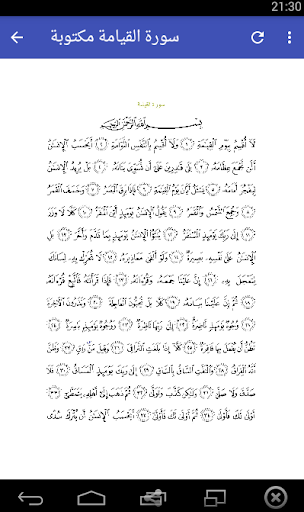 21:30
سورة القيامة مكتوبة
سورة القيامة
بِسْمِ ٱللَّهِ ٱلرَّحْمَٰنِ ٱلرَّحِيمِ
لَآ أُقْسِمُ بِيَوْمِ ٱلْقِيَٰمَةِ ﴿١﴾ وَلَآ أُقْسِمُ بِٱلنَّفْسِ ٱللَّوَّامَةِ ﴿٢﴾ أَيَحْسَبُ ٱلْإِنسَٰنُ
أَلَّن نَّجْمَعَ عِظَامَهُۥ ﴿٣﴾ بَلَىٰ قَٰدِرِينَ عَلَىٰٓ أَن نُّسَوِّىَ بَنَانَهُۥ ﴿٤﴾ بَلْ يُرِيدُ ٱلْإِنسَٰنُ
لِيَفْجُرَ أَمَامَهُۥ ﴿٥﴾ يَسْـَٔلُ أَيَّانَ يَوْمُ ٱلْقِيَٰمَةِ ﴿٦﴾ فَإِذَا بَرِقَ ٱلْبَصَرُ ﴿٧﴾ وَخَسَفَ ٱلْقَمَرُ
﴿٨﴾ وَجُمِعَ ٱلشَّمْسُ وَٱلْقَمَرُ ﴿٩﴾ يَقُولُ ٱلْإِنسَٰنُ يَوْمَئِذٍ أَيْنَ ٱلْمَفَرُّ ﴿١٠﴾ كَلَّا لَا وَزَرَ
﴿١١﴾ إِلَىٰ رَبِّكَ يَوْمَئِذٍ ٱلْمُسْتَقَرُّ ﴿١٢﴾ يُنَبَّؤُا۟ ٱلْإِنسَٰنُ يَوْمَئِذٍۭ بِمَا قَدَّمَ وَأَخَّرَ ﴿١٣﴾ بَلِ
ٱلْإِنسَٰنُ عَلَىٰ نَفْسِهِۦ بَصِيرَةٌ ﴿١٤﴾ وَلَوْ أَلْقَىٰ مَعَاذِيرَهُۥ ﴿١٥﴾ لَا تُحَرِّكْ بِهِۦ لِسَانَكَ
لِتَعْجَلَ بِهِۦٓ ﴿١٦﴾ إِنَّ عَلَيْنَا جَمْعَهُۥ وَقُرْءَانَهُۥ ﴿١٧﴾ فَإِذَا قَرَأْنَٰهُ فَٱتَّبِعْ قُرْءَانَهُۥ
﴿١٨﴾ ثُمَّ إِنَّ عَلَيْنَا بَيَانَهُۥ ﴿١٩﴾ كَلَّا بَلْ تُحِبُّونَ ٱلْعَاجِلَةَ ﴿٢٠﴾ وَتَذَرُونَ ٱلْءَاخِرَةَ
﴿٢١﴾ وُجُوهٌ يَوْمَئِذٍ نَّاضِرَةٌ ﴿٢٢﴾ إِلَىٰ رَبِّهَا نَاظِرَةٌ ﴿٢٣﴾ وَوُجُوهٌ يَوْمَئِذٍۭ بَاسِرَةٌ ﴿٢٤﴾
تَظُنُّ أَن يُفْعَلَ بِهَا فَاقِرَةٌ ﴿٢٥﴾ كَلَّآ إِذَا بَلَغَتِ ٱلتَّرَاقِىَ ﴿٢٦﴾ وَقِيلَ مَنْ رَاقٍ ﴿٢٧﴾ وَظَنَّ
أَنَّهُ ٱلْفِرَاقُ ﴿٢٨﴾ وَٱلْتَفَّتِ ٱلسَّاقُ بِٱلسَّاقِ ﴿٢٩﴾ إِلَىٰ رَبِّكَ يَوْمَئِذٍ ٱلْمَسَاقُ ﴿٣٠﴾ فَلَا
صَدَّقَ وَلَا صَلَّىٰ ﴿٣١﴾ وَلَٰكِن كَذَّبَ وَتَوَلَّىٰ ﴿٣٢﴾ ثُمَّ ذَهَبَ إِلَىٰٓ أَهْلِهِۦ يَتَمَطَّىٰٓ ﴿٣٣﴾
أَوْلَىٰ لَكَ فَأَوْلَىٰ ﴿٣٤﴾ ثُمَّ أَوْلَىٰ لَكَ فَأَوْلَىٰٓ ﴿٣٥﴾ أَيَحْسَبُ ٱلْإِنسَٰنُ أَن يُتْرَكَ سُدًى